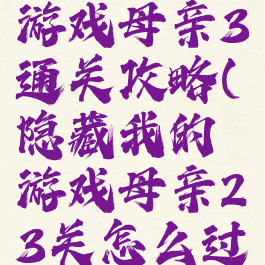 游戏母亲3
通关攻略(
隐藏我的
游戏母亲2
3关怎么过